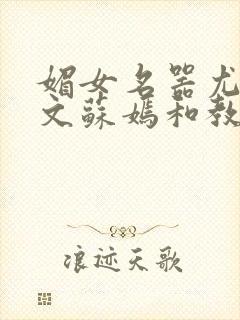 媚女名器尤
文蘇媽和教
浪迹天歌